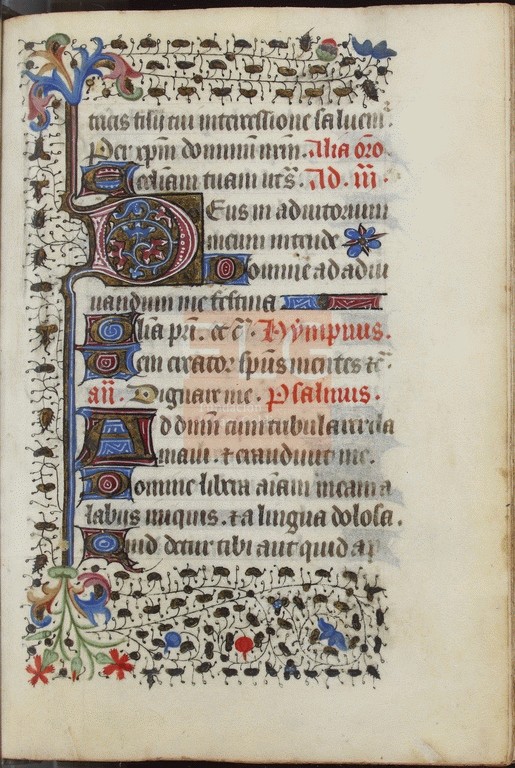 tricis filij tui intercessione saluem̄.
Per xp̄m dominū nr̄m. Alia oro
Ecc̄liam tuam ut s̄. Ad. iii.
Deus in adiutorium
meum intende
Domine ad adiu
uandum me festina
Glia pr̄i. et c̄. Hympnus.
Ueni creator sp̄us mentes et c̄.
an̄. Dignare me. Psalmus.
Ad dūm cum tribularer cla
maui. et exaudiuit me.
Domine libera aīam meam a
labijs iniquis. et a lingua dolosa.
Quid detur tibi aut quid ap